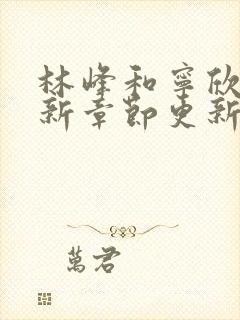 林峰和寧欣
新章節更新
萬君